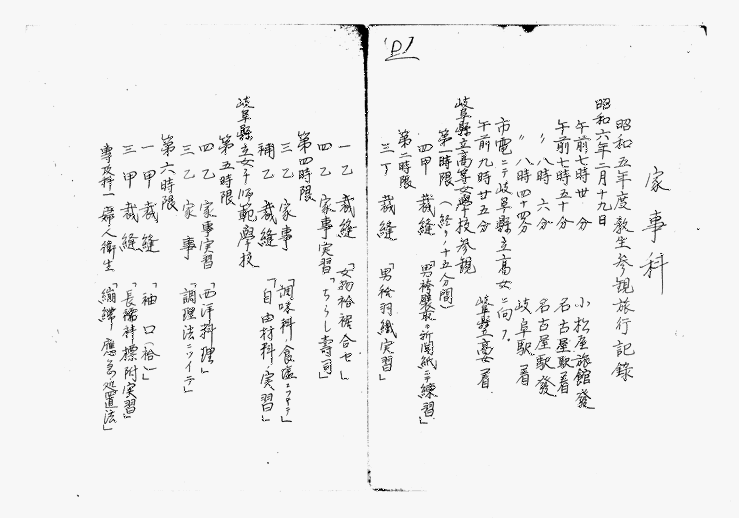 P7
家事科
昭和五年度教生参観旅行記録
昭和六年二月十九日
午前七時卅分 小松屋旅館発
午前七時五十分 名古屋駅着
〃 八時 六分 名古屋駅発
〃 八時四十四分 岐阜駅着
市電ニテ岐阜県立高女ニ向フ。
午前九時廿五分 岐阜高女着
岐阜縣立高等女學校参観
第一時限 (終リノ十五分間)
四甲 裁縫 「男袴襞取リ新聞紙ニテ練習」
第二時限
三丁 裁縫 「男袷羽織実習」
一乙 裁縫 「女物袷裾合セ」
四乙 家事実習 「ちらし壽司」
第四時限
三乙 家事 「調味料(食塩ニツキテ)」
補乙 裁縫 「自由材料ノ実習」
岐阜縣立女子師範學校
第五時限
四乙 家事実習 「西洋料理」
三乙 家事 「調理法ニツイテ」
第六時限
一甲 裁縫 「袖口(袷)」
三甲 裁縫 「長襦袢標附実習」
専攻科一 婦人衛生 「繃帯 應急処置法」